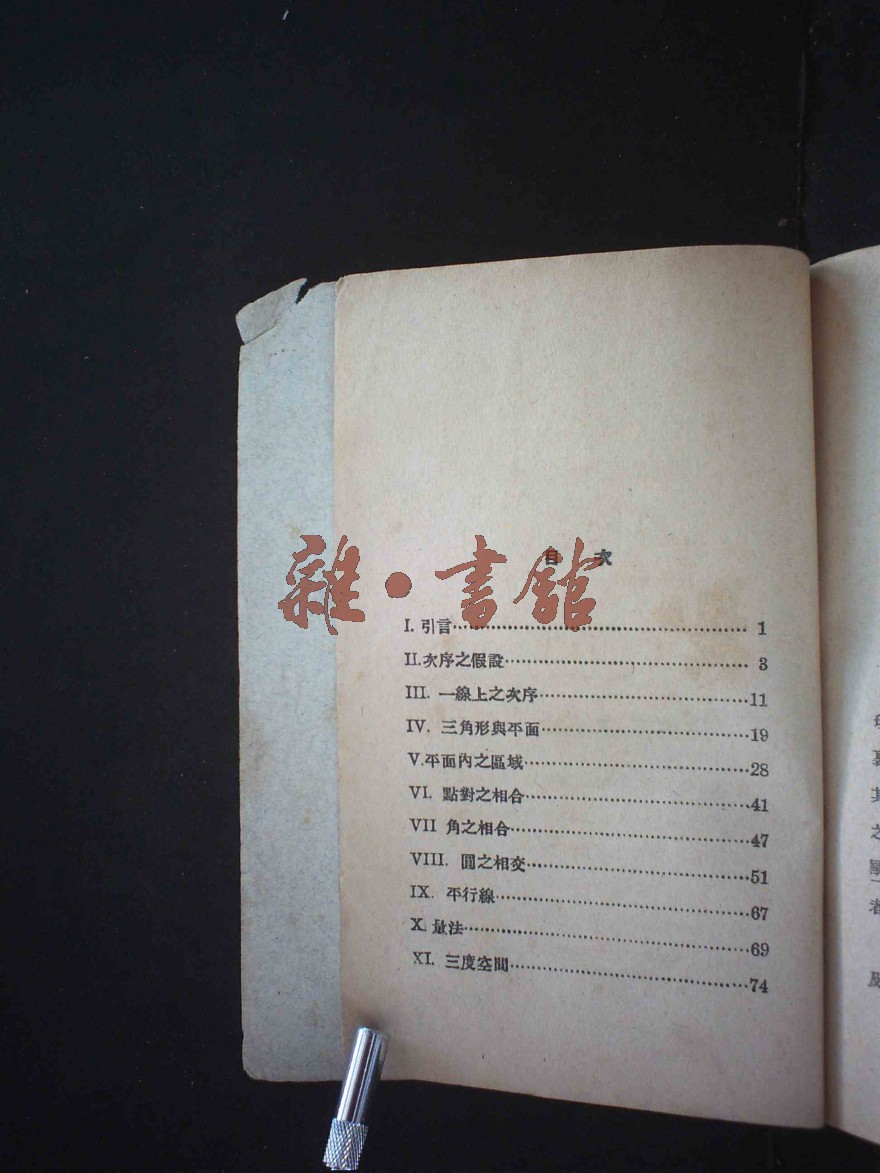 目 次
雜·書館
I. 引言 1
II.次序之假設 3
III. 一線上之次序 11
IV. 三角形與平面 19
V.平面內之區域 28
VI. 點對之相合 41
VII 角之相合 47
VIII. 圓之相交 51
IX. 平行線 67
X. 量法 69
XI. 三度空間 74